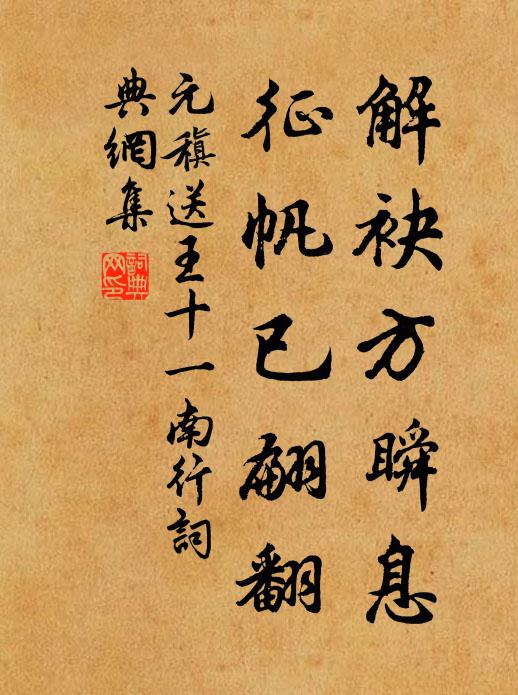 解袂方瞬息
征帆已翩翻
元稹送王十一南行詞
典網集
詞典網印